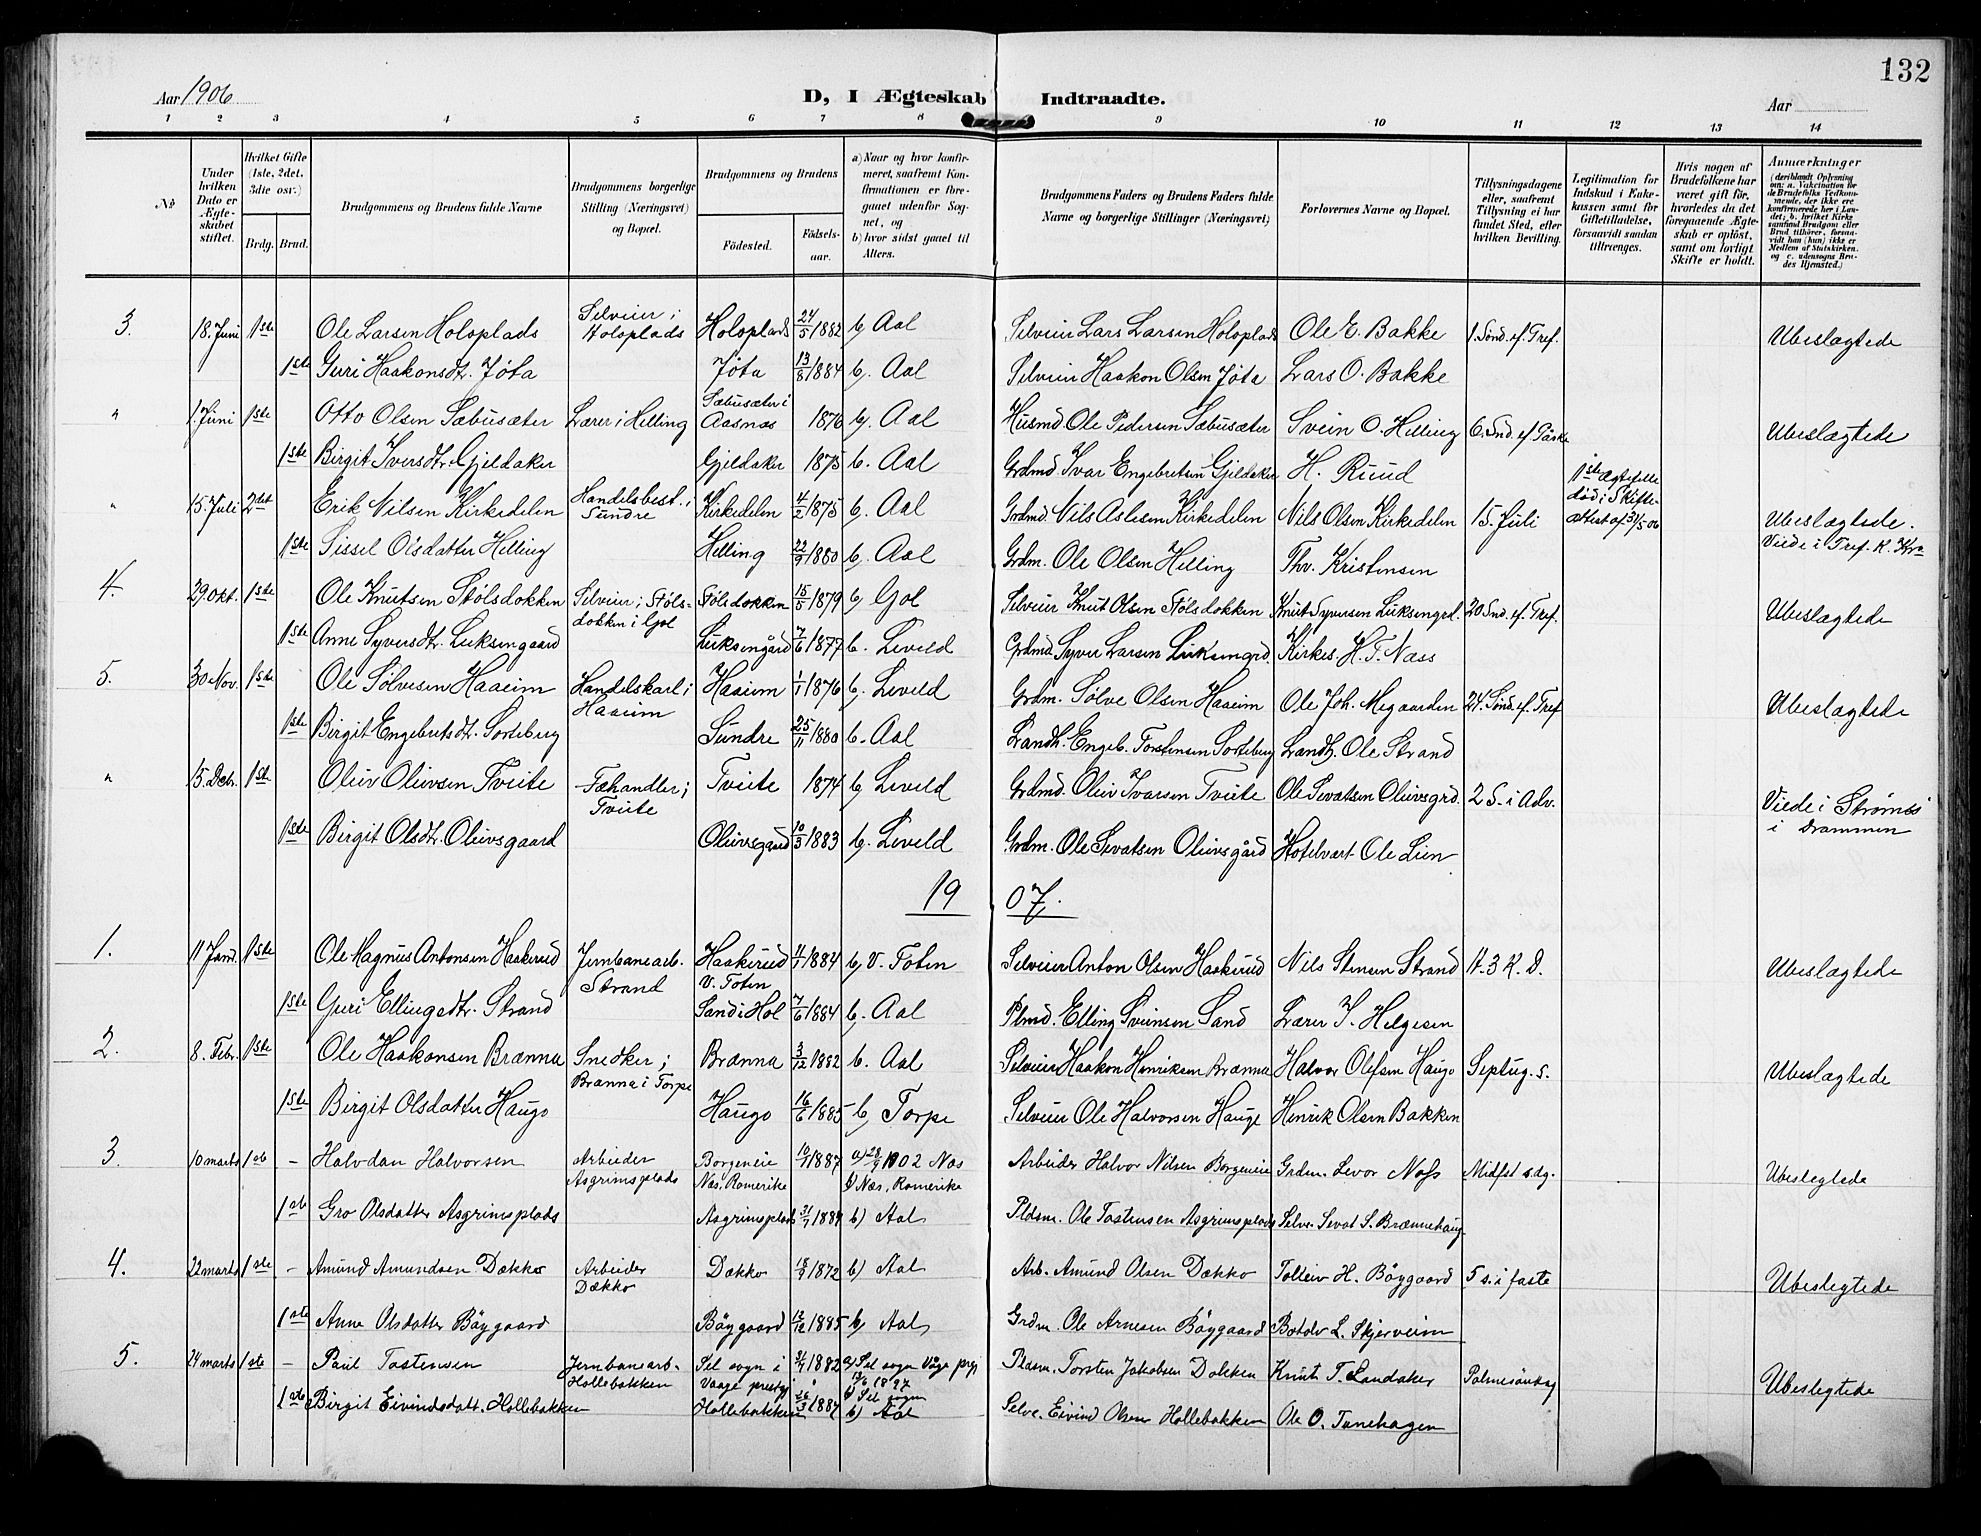 132
Aar 1906
D, I Ægteskab Indtraadte.
Aar
1 2 3 4 5 6 7 8 9 10 11 12 13 14
No
Under hvilken Dato er Ægteskabet stiftet.
Hvilket Gifte (1ste, 2det, 3die osv.)
Brdg. Brud.
Brudgommens og Brudens fulde Navne
Brudgommens borgerlige Stilling (Næringsvei) og Bopæl.
Brudgommens og Brudens
Födested.
Födselsaar.
a) Naar og hvor konfirmeret, saafremt Konfirmationen er foregaaet udenfor Sognet, og
b) hvor sidst gaaet til Alters.
Brudgommens Faders og Brudens Faders fulde Navne og borgerlige Stillinger (Næringsvei)
Forlovernes Navne og Bopæl.
Tillysningsdagene eller, saafremt Tillysning ei har fundet Sted, efter hvilken Bevilling.
Legitimation for Indskud i Enkekassen samt for Giftetilladelse, forsaavidt saadan tiltrænges.
Hvis nogen af Brudefolkene har været gift för, hvorledes da det foregaaende Ægteskab er oplöst, samt om lovligt Skifte er holdt.
Anmærkninger (deriblandt Oplysning om: a. Vakcination for de Brudefolks Vedkommende, der ikke ere konfirmerede her i Landet; b. hvilket Kirkesamfund Brudgom eller Brud tilhörer, forsaavidt han (hun) ikke er Medlem af Statskirken, og c. udensogns Brudes Hjemsted.)
3. 18. Juni 1ste Ole Larsen Holoplads Selveier i Holoplads Holoplads 24/5 1882 b, Aal Selveier Lars Larsen Holoplads Ole E. Bakke 1. Sönd. ef. Tref. Ubeslægtede
1ste Guri Haakonsdt. Jöta Jöta 13/8 1884 b, Aal Selveier Haakon Olsen Jöta Lars O. Bakke
" 1. Juni 1ste Otto Olsen Sæbusæter Lærer i Helling Sæbusæter i Aasnæs 1876 b, Aal Husmd Ole Pedersen Sæbusæter Svein O. Helling 6. Snd. ef. Paaske Ubeslægtede
1ste Birgit Iversdtr. Gjeldaker Gjeldaker 1875 b. Aal Grdmd Ivar Engebretsen Gjeldaker H. Ruud
" 15. Juli 2det Erik Nilsen Kirkedelen Handelsbest. i Sundre Kirkedelen 4/2 1875 b. Aal Grdmd. Nils Aslesen Kirkedelen Nils Olsen Kirkedelen 15. Juli 1ste Ægtefelle död i Skifteattest af 31/5 06 Ubeslægtede. Viede i Tref. K. Kra
1ste Sissel Olsdatter Helling Helling 22/9 1880 b, Aal Grdm. Ole Olsen Helling Thv. Kristensen
4. 29. Okt. 1ste Ole Knutsen Stölsdokken Selveier i Stölsdokken i Gol Stölsdokken 15/5 1879 b, Gol Selveier Knut Olsen Stölsdokken Knut Syversen Luksengrd. 20 Snd. ef. Tref. Ubeslægtede
1ste Anne Syversdt. Luksengaard Luksengård 7/6 1877 b. Leveld Grdmd Syver Larsen Luksengrd. Kirkes. H. T. Næss
5. 30 Nov. 1ste Ole Sölvesen Haaeim Handelskarl i Haaeim Haaeim 1/1 1876 b, Leveld Grdm. Sölve Olsen Haaeim Ole Joh. Megaarden 24. Sönd. ef. Tref Ubeslægtede
1ste Birgit Engebretsdt. Sorteberg Sundre 25/11 1880 b. Aal Landh. Engeb. Torstensen Sorteberg Landh. Ole Strand
" 15. Decbr. 1ste Oleiv Oleivsen Tveite Fæhandler i Tveite Tveite 1874 b, Leveld Grdmd. Oleiv Ivarsen Tveite Ole Sevatsen Oleivsgrd. 2 S. i Adv. Viede i Strömsö i Drammen
1ste Birgit Olsdtr. Oleivsgaard Oleivsgaard 10/3 1883 b, Leveld Grdm. Ole Sevatsen Oleivsgård Hotelvært Ole Lien
1907.
1. 11 Jand. 1ste Ole Magnus Antonsen Haakerud Jernbanearb. Strand Haakerud V. Toten 4/1 1884 b, V. Toten Selveier Anton Olsen Haakerud Nils Stensen Strand H. 3 K. D. Ubeslægtede
1ste Guri Ellingsdtr. Strand Sand i Hol 7/6 1884 b, Aal Plmd. Elling Sveinsen Sand Lærer S. Helgesen
2. 8. Febr. 1ste Ole Haakonsen Brænna Snedker i Brænna i Torpe Brænna 3/12 1882 b. Aal Selveier Haakon Henriksen Brænna Halvor Olefsen Haugo Septug. S. Ubeslægtede
1ste Birgit Olsdatter Haugo Haugo 16/6 1885 b, Torpe Selveier Ole Halvorsen Hauge Henrik Olsen Bakken
3. 10 marts 1ste – Halvdan Halvorsen Arbeider Asgrimsplads Borgeneie Næs, Romerike 10/1 1887 a) 28/9 1902 Næs b) Næs, Romerike Arbeider Halvor Nilsen Borgeneie Grdm. Levor Næss Midfst sdg. Ubeslegtede
1ste Gro Olsdatter Asgrimsplads Asgrimsplads 31/1 1889 b) Aal Pldsm. Ole Tostensen Asgrimsplads Selve. Sevat S. Brænnehaug
4. 22 marts 1ste – Amund Amundsen Dækko Arbeider Dækko Dækko 18/9 1872 b) Aal Arb. Amund Olsen Dækko Tolleiv H. Böygaard 5 s. i faste Ubeslegtede
1ste Anne Olsdatter Böygaard Böygaard 12/12 1885 b) Aal Grdm. Ole Arnesen Böygaard Botolv L. Skjerveim
5. 24 marts 1ste – Paul Tostensen Jernbanearb. Hollebakken Sel sogn i Vaage prestgj. 3/7 1882 a) Sel sogn Våge prgj 13/6 1897 b) Sel sogn Pldsm. Torsten Jakobsen Dokken Knut T. Landaker Palmesöndag Ubeslegtede
1ste Birgit Eivindsdatt. Hollebakken Hollebakken 26/3 1884 b) Aal Selve. Eivind Olsen Hollebakken Ole O. Tunehagen